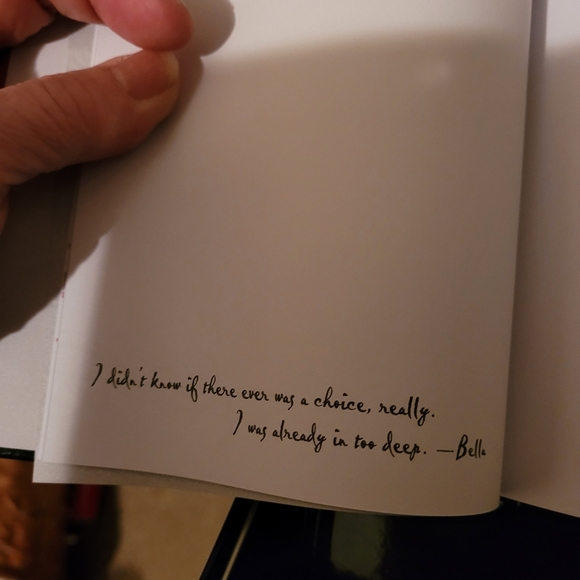 I didn't know if there ever was a choice, really.
I was already in too deep. —Bella